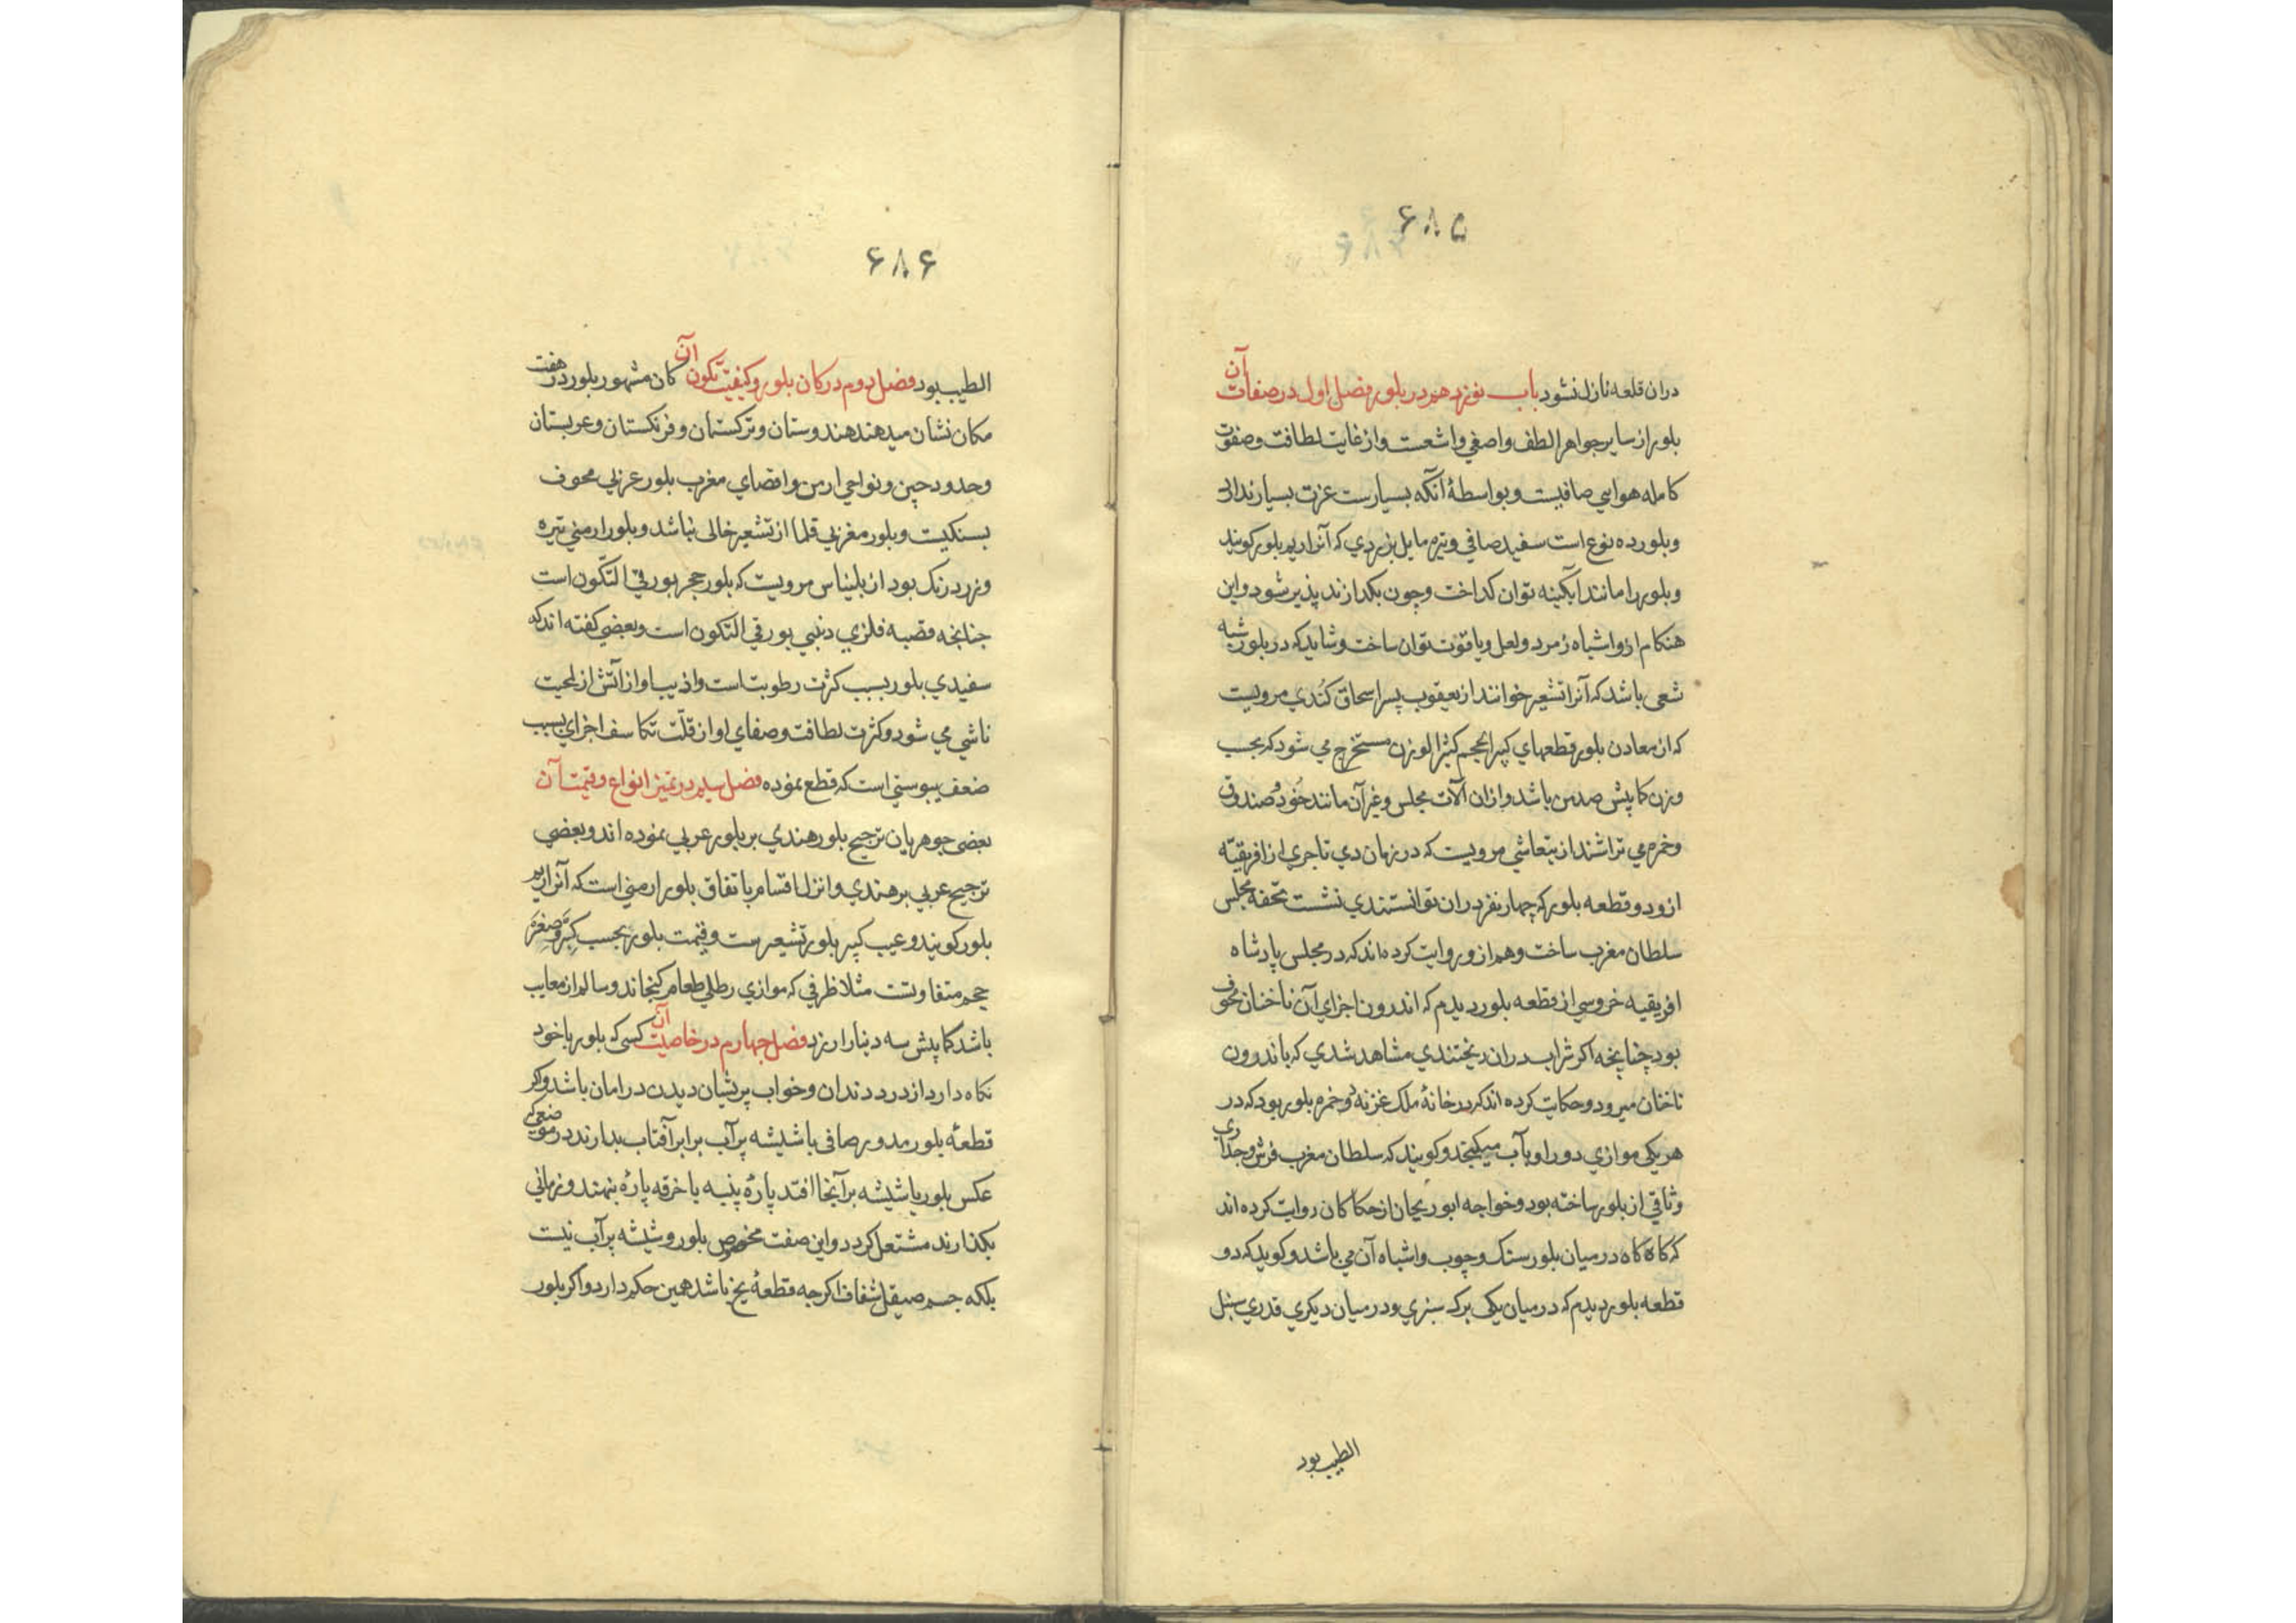 ۶۸۵
دران قلعه نازل نشود باب نوزدهم در بلور فصل اول در صفات آن
بلور از سایر جواهر الطف واصفی واشعت واز غایت لطافت وصفوت
کامله هوایی صافیست وبواسطهٔ آنکه بسیارست عزت بسیار ندارد
وبلور ده نوع است سفید صافی وتیره مایل بزردي که آنرا ریم بلور کویند
وبلور را مانند آبکینه توان کداخت وچون بکدازند پذیر شود واین
هنکام ازو اشباه زمرد ولعل ویاقوت توان ساخت وشاید که در بلور شبه
شعی باشد که آنرا تشعیر خوانند از یعقوب پسر اسحاق کندي مرویست
که از معادن بلور قطعهاي کبیر الحجم کثیر الوزن مستخرج می شود که بحسب
وزن کمابیش صد من باشد وازان آلات مجلس وغیر آن مانند خود وصندوق
وخم می تراشند از متعاشی مرویست که در زمان دي تاجري از افریقیّه
ازو دو قطعه بلور که چهار نفر دران توانستندي نشست تحفه مجلس
سلطان مغرب ساخت وهم ازو روایت کرده‌اند که در مجلس پادشاه
افریقیه خروسی از قطعه بلور دیدم که اندرون اجزاي آن ناخنان مجوف
بود چنانچه اکر شراب دران ریختندي مشاهد شدي که باندرون
ناخنان میرود وحکایت کرده اند که در خانهٔ ملک غزنه دو خم بلور بود که در
هر یکی موازي دو راویه آب میکنجد وکویند که سلطان مغرب فرش وجداري
وثاقی از بلور ساخته بود وخواجه ابوریحان از حکاکان روایت کرده اند
که کاه کاه در میان بلور سنک وچوب واشباه آن می باشد وکوید که دو
قطعه بلور دیدم که در میان یکی برک سبزي ودر میان دیکري قدري سنبل
الطیب بود
۶۸۶
الطیب بود فصل دوم در کان بلور وکیفیت تکون آن کان مشهور بلور در هفت
مکان نشان میدهند هندوستان وترکستان وفرنکستان وعربستان
وحدود چین ونواحی ارمن واقصاي مغرب بلور عربی محوف
بسنکیست وبلور مغربی قلما از تشعیر خالی نباشد وبلور ارمنی تیره
وزرد رنک بود از بلیناس مرویست که بلور حجر بورقی التکون است
چنانچه قضبه فلزي ذنبی بورقی التکون است وبعضی کفته اند که
سفیدي بلور بسبب کثرت رطوبتاست واذیب او از آتش از لحیت
ناشی می شود وکثرت لطافت وصفاي او از قلّت تکاسف اجزاي بسبب
ضعف یبوستی است که قطع نموده فصل سیم در تمیز انواع وقیمت آن
بعضی جوهریان ترجیح بلور هندي بر بلور عربی نموده اند وبعضی
ترجیح عربی بر هندي وانزل اقسام باتفاق بلور ارمنی است که آنرا ریم
بلور کویند وعیب کبیر بلور تشعیرست وقیمت بلور بحسب کبر وصغر
حجم متفاوتست مثلا ظرفی که موازي رطلی طعام کنجاند وسالم از معایب
باشد کمابیش سه دینار ارزد فصل چهارم در خاصیت آن کسی که بلور باخود
نکاه دارد از درد دندان وخواب پریشان دیدن در امان باشد واکر
قطعهٔ بلور مدور صافی یا شیشه پر آب برابر آفتاب بدارند در موضعی که
عکس بلور یا شیشه بر آنجا افتد پارهٔ پنبه یا خرقه پارهٔ بنهند وزمانی
بکذارند مشتعل کردد واین صفت مخصوص بلور وشیشه پر آب نیست
بلکه جسم صیقل شفاف اکرچه قطعهٔ یخ باشد همین حکم دارد واکر بلور